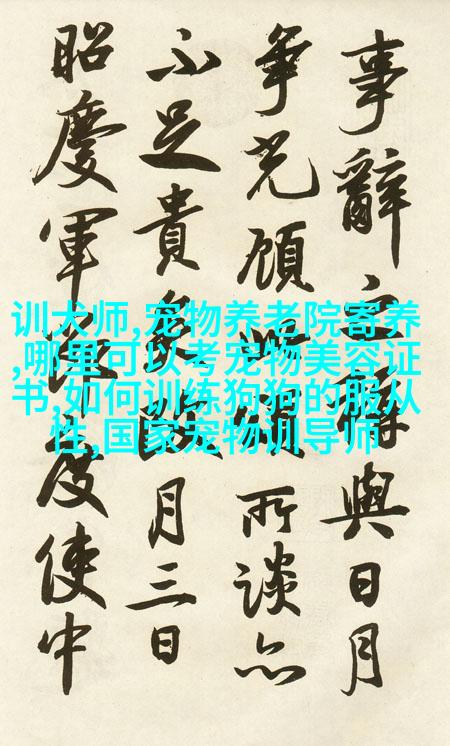 事辭與日月
爭光顧所談亦
不足貴月三日
昭慶軍度使中
训犬师,宠物养老院寄养
,哪里可以考宠物美容证
书,如何训练狗狗的服从
性,国家宠物训导师